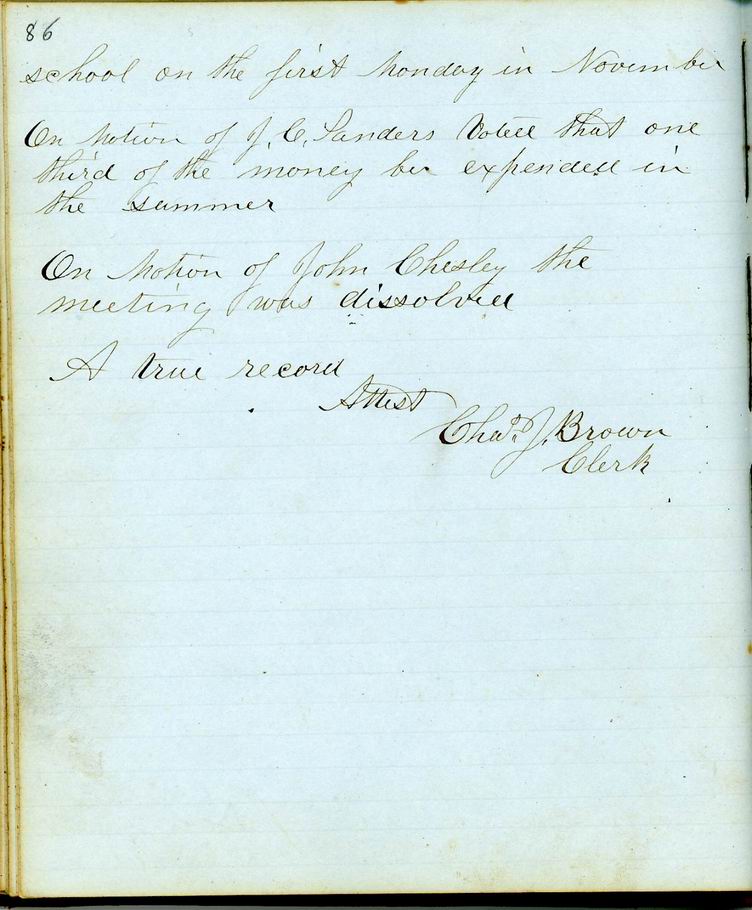 86
school on the first Monday in November
On Motion of J. C. Sanders Voted that one
third of the money be expended in
the summer
On Motion of John Chesley the
meeting was dissolved
A true record
Attest
Chas. J. Brown
Clerk